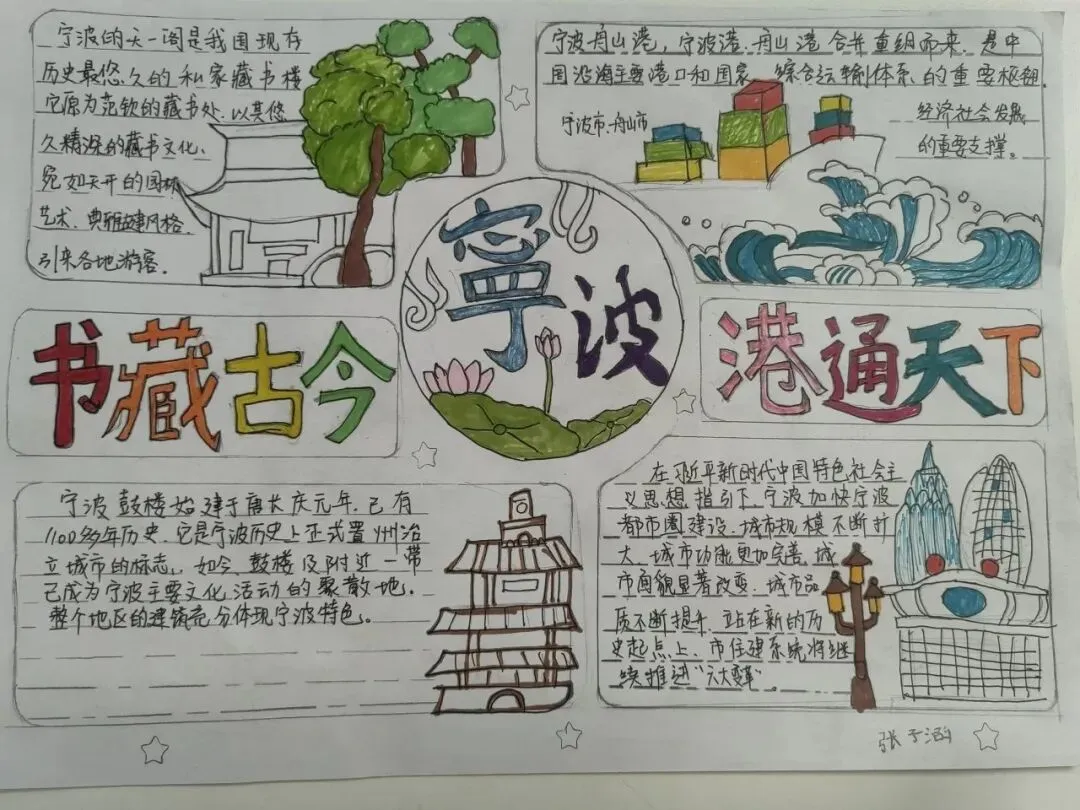 宁波的天一阁是我国现存
历史最悠久的私家藏书楼
它原为范钦的藏书处.以其悠
久精深的藏书文化、
宛如天开的园林
艺术、典雅建风格.
引来各地游客.
宁波舟山港,宁波港.舟山港合并重组而来.是中
国沿海主要港口和国家 综合运输体系的重要枢纽
宁波市.舟山市
经济社会发展
的重要支撑。
寧波
书藏古今
港通天下
宁波鼓楼始建于唐长庆元年.已有
1100多年历史.它是宁波历史上正式置州治
立城市的标志.如今.鼓楼及附近一带
已成为宁波主要文化活动的聚散地.
整个地区的建筑充分体现宁波特色。
在习近平新时代中国特色社会主
义思想指引下.宁波加快宁波
都市圈建设.城市规模不断扩
大.城市功能更加完善.城
市面貌显著改变.城市品
质不断提升.站在新的历
史起点上.市住建系统将继
续推进"六大变革".
张子涵